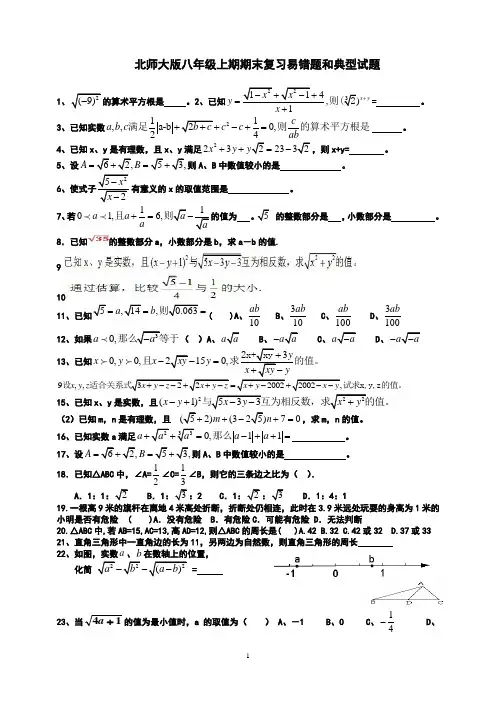 北师大版八年级上期期末复习易错题和典型试题
1、√(-9)² 的算术平方根是 。2、已知 y=(√(1-x²)+√(x²-1)+4)/(x+1),则(∛2)^(x+y)= 。
3、已知实数a,b,c满足 1/2|a-b|+√(2b+c)+c²-c+1/4=0,则 c/ab 的算术平方根是 。
4、已知x、y是有理数,且x、y满足2x²+3y+y√2=23-3√2,则x+y= 。
5、设A=√6+√2,B=√5+√3,则A、B中数值较小的是 。
6、使式子√(5-x²)/√(x-2)有意义的x的取值范围是 。
7、若0≺a≺1,且a+1/a=6,则√a-1/√a的值为 。√5 的整数部分是 ,小数部分是 。
8.已知√35的整数部分a,小数部分是b,求a-b的值.
9 已知x、y是实数,且(x-y+1)²与√(5x-3y-3)互为相反数,求√(x²+y²)的值。
10 通过估算,比较(√5-1)/4与1/2的大小.
11、已知√5=a,√14=b,则√0.063=( )A、ab/10 B、3ab/10 C、ab/100 D、3ab/100
12、如果a≺0,那么√(-a³)等于( )A、a√a B、-a√a C、a√-a D、-a√-a
13、已知x≻0,y≻0,且x-2√xy-15y=0,求(2x+√xy+3y)/(x+√xy-y)的值。
9设x,y,z适合关系式√(3x+y-z-2)+√(2x+y-z)=√(x+y-2002)+√(2002-x-y),试求x,y,z的值。
15、已知x、y是实数,且(x-y+1)²与√(5x-3-y-3)互为相反数,求√(x²+y²)的值。
(2)已知m,n是有理数,且 (√5+2)m+(3-2√5)n+7=0,求m,n的值。
16、已知实数a满足a+√a²+∛a³=0,那么|a-1|+|a+1|= 。
17、设A=√6+√2,B=√5+√3,则A、B中数值较小的是 。
18.已知△ABC中,∠A=1/2∠C=1/3∠B,则它的三条边之比为( ).
A.1:1:√2 B.1:√3:2 C.1:√2:√3 D.1:4:1
19.一根高9米的旗杆在离地4米高处折断,折断处仍相连,此时在3.9米远处玩耍的身高为1米的
小明是否有危险 ( )A.没有危险 B.有危险 C.可能有危险 D.无法判断
20.△ABC中,若AB=15,AC=13,高AD=12,则△ABC的周长是( )A.42 B.32 C.42或32 D.37或33
21、直角三角形中一直角边的长为11,另两边为自然数,则直角三角形的周长
22、如图,实数a、b在数轴上的位置,
a b
-1 0 1
化简 √a²-√b²-√(a-b)² =
A
B D C
23、当√(4a+1)的值为最小值时,a的取值为( ) A、-1 B、0 C、-1/4 D、
1